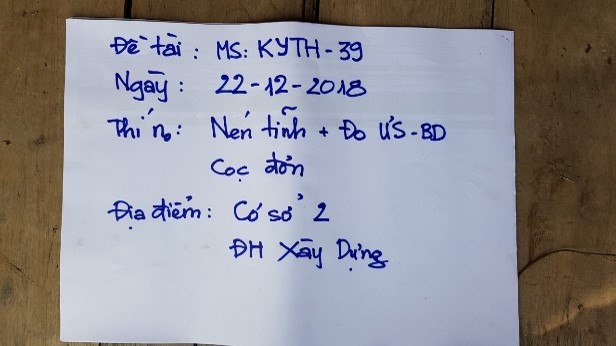 Đề tài : MS: KYTH - 39
Ngày : 22 - 12 - 2018
Thí no: Nén tĩnh + Đo ƯS - BD
Cọc đơn
Địa điểm : Cơ sở 2
ĐH Xây Dựng